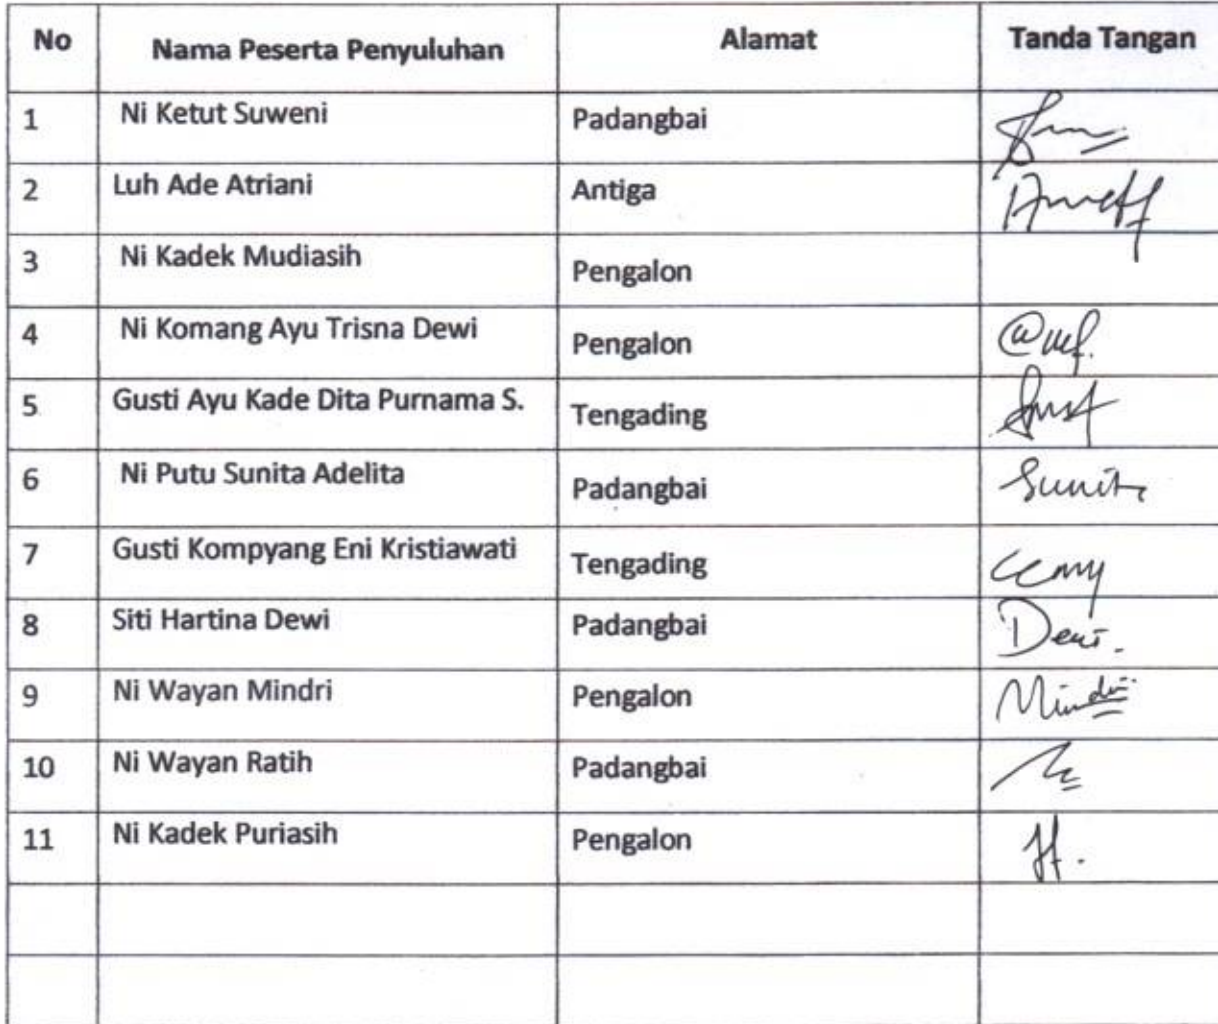 No Nama Peserta Penyuluhan Alamat Tanda Tangan
1 Ni Ketut Suweni Padangbai
2 Luh Ade Atriani Antiga
3 Ni Kadek Mudiasih Pengalon
4 Ni Komang Ayu Trisna Dewi Pengalon
5 Gusti Ayu Kade Dita Purnama S. Tengading
6 Ni Putu Sunita Adelita Padangbai Sunita
7 Gusti Kompyang Eni Kristiawati Tengading
8 Siti Hartina Dewi Padangbai Dewi.
9 Ni Wayan Mindri Pengalon Mindri
10 Ni Wayan Ratih Padangbai
11 Ni Kadek Puriasih Pengalon